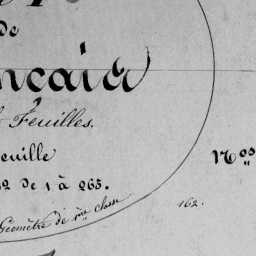 de
ncaid
Feuilles.
euille
2 de 1 à 265.
Nos
Géomètre de 1ère classe
162.